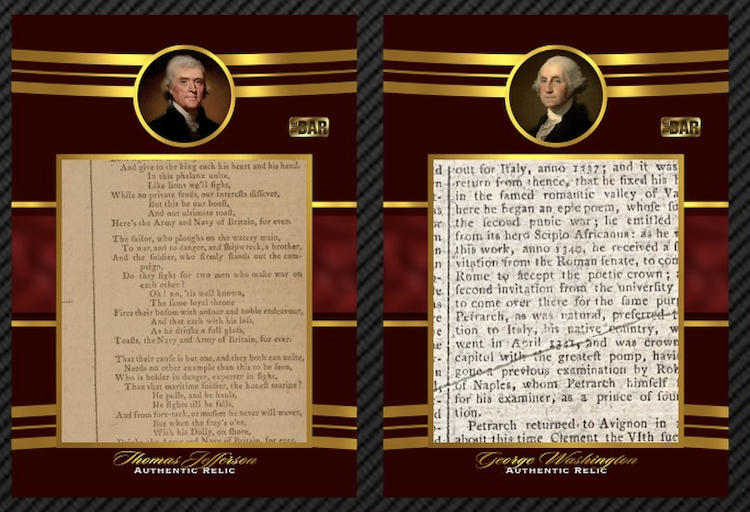 THE BAR
And give to the king each his heart and his hand.
In this phalanx unite,
Like lions we'll fight,
While no private feuds, our intereſts diſſever,
But this be our boaſt,
And our ultimate toaſt,
Here's the Army and Navy of Britain, for ever.
The ſailor, who ploughs on the watery main,
To war, and to danger, and ſhipwreck, a brother,
And the ſoldier, who firmly ſtands out the cam-
paign,
Do they fight for two men who make war on
each other?
Oh! no, 'tis well known,
The ſame loyal throne
Fires their boſom with ardour and noble endeavour,
And that each with his laſs,
As he drinks a full glaſs,
Toaſts, the Navy and Army of Britain, for ever.
That their cauſe is but one, and they both can unite,
Needs no other example than this to be ſeen,
Who is bolder in danger, experter in fight,
Than that maritime ſoldier, the honeſt marine?
He pulls, and he hauls,
He fights till he falls,
And from fore-tack, or muſket he never will waver,
But when the fray's o'er,
With his Dolly, on ſhore,
Drinks the Army and Navy of Britain, for ever.
Thomas Jefferson
AUTHENTIC RELIC
THE BAR
out for Italy, anno 1337; and it was
return from thence, that he fixed his
in the famed romantic valley of Va
here he began an epic poem, whoſe
the ſecond punic war; he entitled
from its hero Scipio Africanus: as he
this work, anno 1340, he received a
vitation from the Roman ſenate, to con
Rome to accept the poetic crown; a
ſecond invitation from the univerſity
to come over there for the ſame pur
Petrarch, as was natural, preferred t
tion to Italy, his native country, w
went in April 1341, and was crown
capitol with the greateſt pomp, havi
gone a previous examination by Rob
of Naples, whom Petrarch himſelf
for his examiner, as a prince of ſou
tion.
Petrarch returned to Avignon in
about this time Clement the VIth ſuc
George Washington
AUTHENTIC RELIC